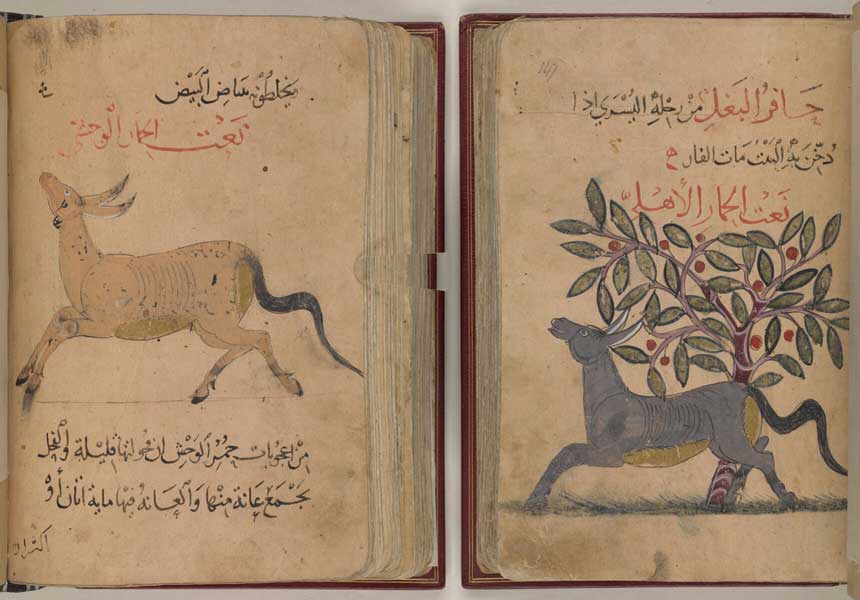 147
حافر البغل من رجله اليسرى اذا
دخن به البيت مات الفار ه
نعت الحمار الأهلي
يخلطونه بياض البيض
نعت الحمار الوحشي
من اعجوبات حمر الوحش ان فحولتها قليلة والفحل
يجمع عانة منها والعانة فيها ماية اتان أو
اكثر